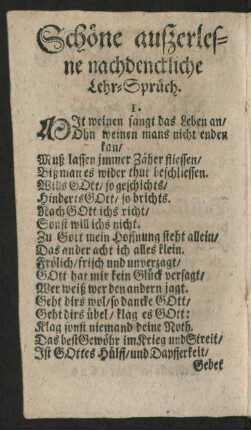 Schöne auszerles-
ne nachdenckliche
Lehr-Sprüch.
1.
MIt weinen fangt das Leben an/
Ohn weinen mans nicht enden
kan/
Muß lassen jmmer Zäher fliessen/
Biß man es wider thut beschliessen.
Wills GOtt/ so geschichts/
Hinderts GOtt/ so brichts.
Nach GOtt ichs richt/
Sonst will ichs nicht.
Zu Gott mein Hoffnung steht allein/
Das ander acht ich alles klein.
Frölich/ frisch und unverzagt/
GOtt hat mir kein Glück versagt/
Wer weiß wer den andern jagt.
Geht dirs wol/ so dancke GOtt/
Geht dirs übel/ klag es GOtt:
Klag sonst niemand deine Noth.
Das best Gewöhr im Krieg und Streit/
Ist GOttes Hülff/ und Dapfferkeit/
Gebet